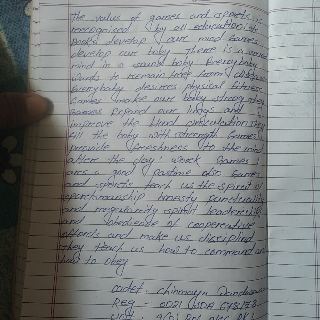 The value of games and sports is
recognised by all educationists
books develop our mind Games
develop our boby There is a sound
mind in a sound boby Everybody
wants to remain free from disease
Everybody desires physical fitness
Games make our boby strong they
Games expand our lungs and
improve the blood circulation They
fill the boby with strength Games
provide freshness to the mind
after the day's work Games
are a good pastime also Games
and sports teach us the spirit of
sportsmanship honesty punctuality
and regularity spirit leadership
and obedience of cooperative
efforts and make us disciplined
They teach us how to command and
how to obey
cadet. Chinmaya
REG - OD21
Unit -